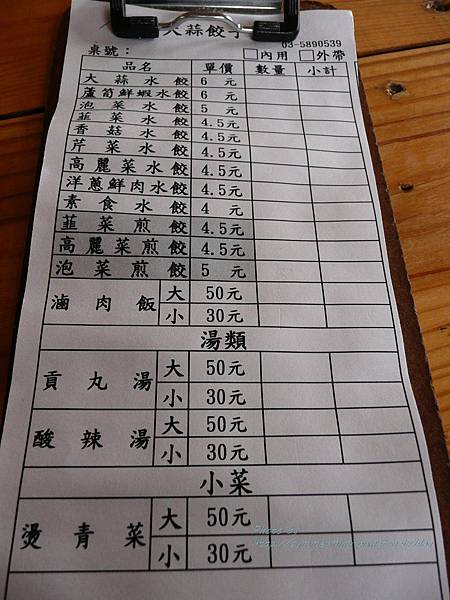 大蒜餃子
03-5890539
桌號： □內用 □外帶
品名 單價 數量 小計
大蒜水餃 6 元
蘆筍鮮蝦水餃 6 元
泡菜水餃 5 元
韮菜水餃 4.5元
香菇水餃 4.5元
芹菜水餃 4.5元
高麗菜水餃 4.5元
洋蔥鮮肉水餃 4.5元
素食水餃 4 元
韮菜煎餃 4.5元
高麗菜煎餃 4.5元
泡菜煎餃 5 元
滷肉飯 大 50元
小 30元
湯類
貢丸湯 大 50元
小 30元
酸辣湯 大 50元
小 30元
小菜
燙青菜 大 50元
小 30元